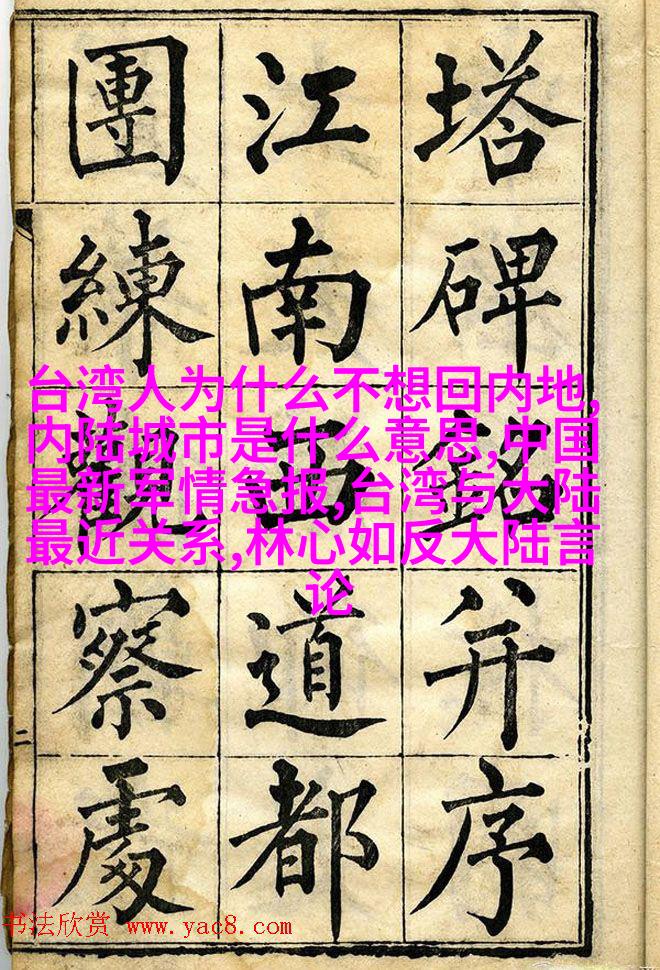 塔碑銘并序
江南西道都
團練觀察處
二
台湾人为什么不想回内地,
内陆城市是什么意思,中国
最新军情急报,台湾与大陆
最近关系,林心如反大陆言
论
书法欣赏 www.yac8.com